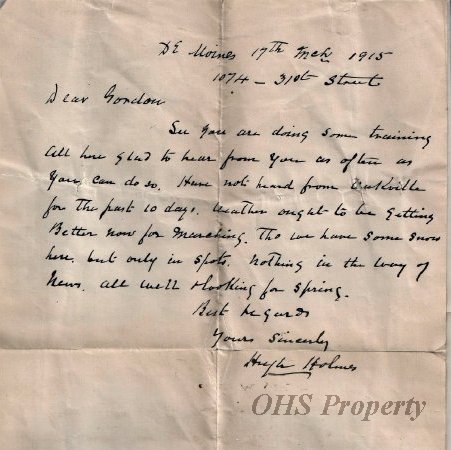 De Moines 17th Mch 1915
1074 - 31st Street
Dear Gordon
See you are doing some training
All here glad to hear from you as often as
you can do so. Have not heard from Oakville
for the past 10 days. Weather ought to be getting
Better now for marching. Tho we have some snow
here. but only in spots. Nothing in the way of
News. all well & looking for spring.
Best Regards
Yours Sincerely
Hugh Holmes
OHS Property